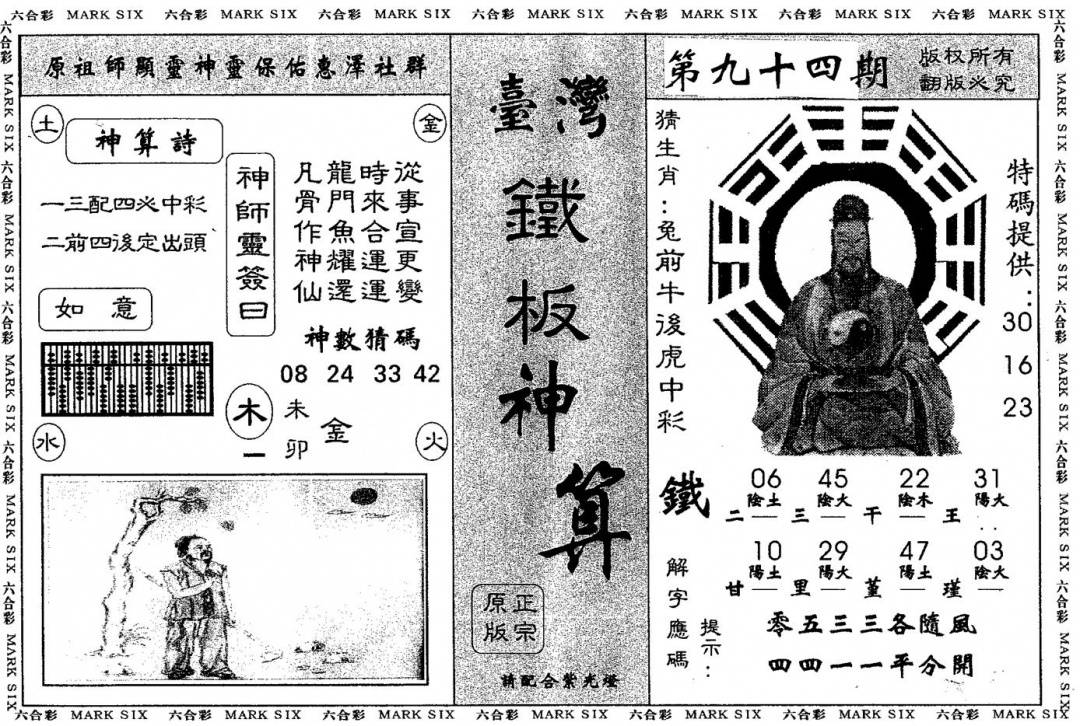 六合彩 MARK SIX 六合彩 MARK SIX 六合彩 MARK SIX 六合彩 MARK SIX 六合彩 MARK SIX 六合彩 MARK SIX 六合彩 MARK SIX
六合彩 MARK SIX 六合彩 MARK SIX 六合彩 MARK SIX 六合彩 MARK SIX 六合彩 MARK SIX
原祖師顯靈神靈保佑惠澤社群
土
神算詩
金
一三配四必中彩
二前四後定出頭
如意
神師靈簽曰
從事宣更變
時來合運運
龍門魚耀還
凡骨作神仙
神數猜碼
08 24 33 42
木
一
未
卯
金
水
火
臺灣
鐵
板
神
算
正宗
原版
請配合紫光燈
第九十四期
版权所有
翻版必究
猜生肖:兔前牛後虎中彩
特碼提供:
30
16
23
鐵
06 45 22 31
陰土 陽火 陰木 陽火
二 — 三 — 干 — 王
10 29 47 03
陽土 陽火 陽土 陰火
甘 — 里 — 堇 — 瑾 —
解字應碼
提示:
零五三三各隨風
四四一一平分開
六合彩 MARK SIX 六合彩 MARK SIX 六合彩 MARK SIX 六合彩 MARK SIX 六合彩 MARK SIX
六合彩 MARK SIX 六合彩 MARK SIX 六合彩 MARK SIX 六合彩 MARK SIX 六合彩 MARK SIX 六合彩 MARK SIX 六合彩 MARK SIX